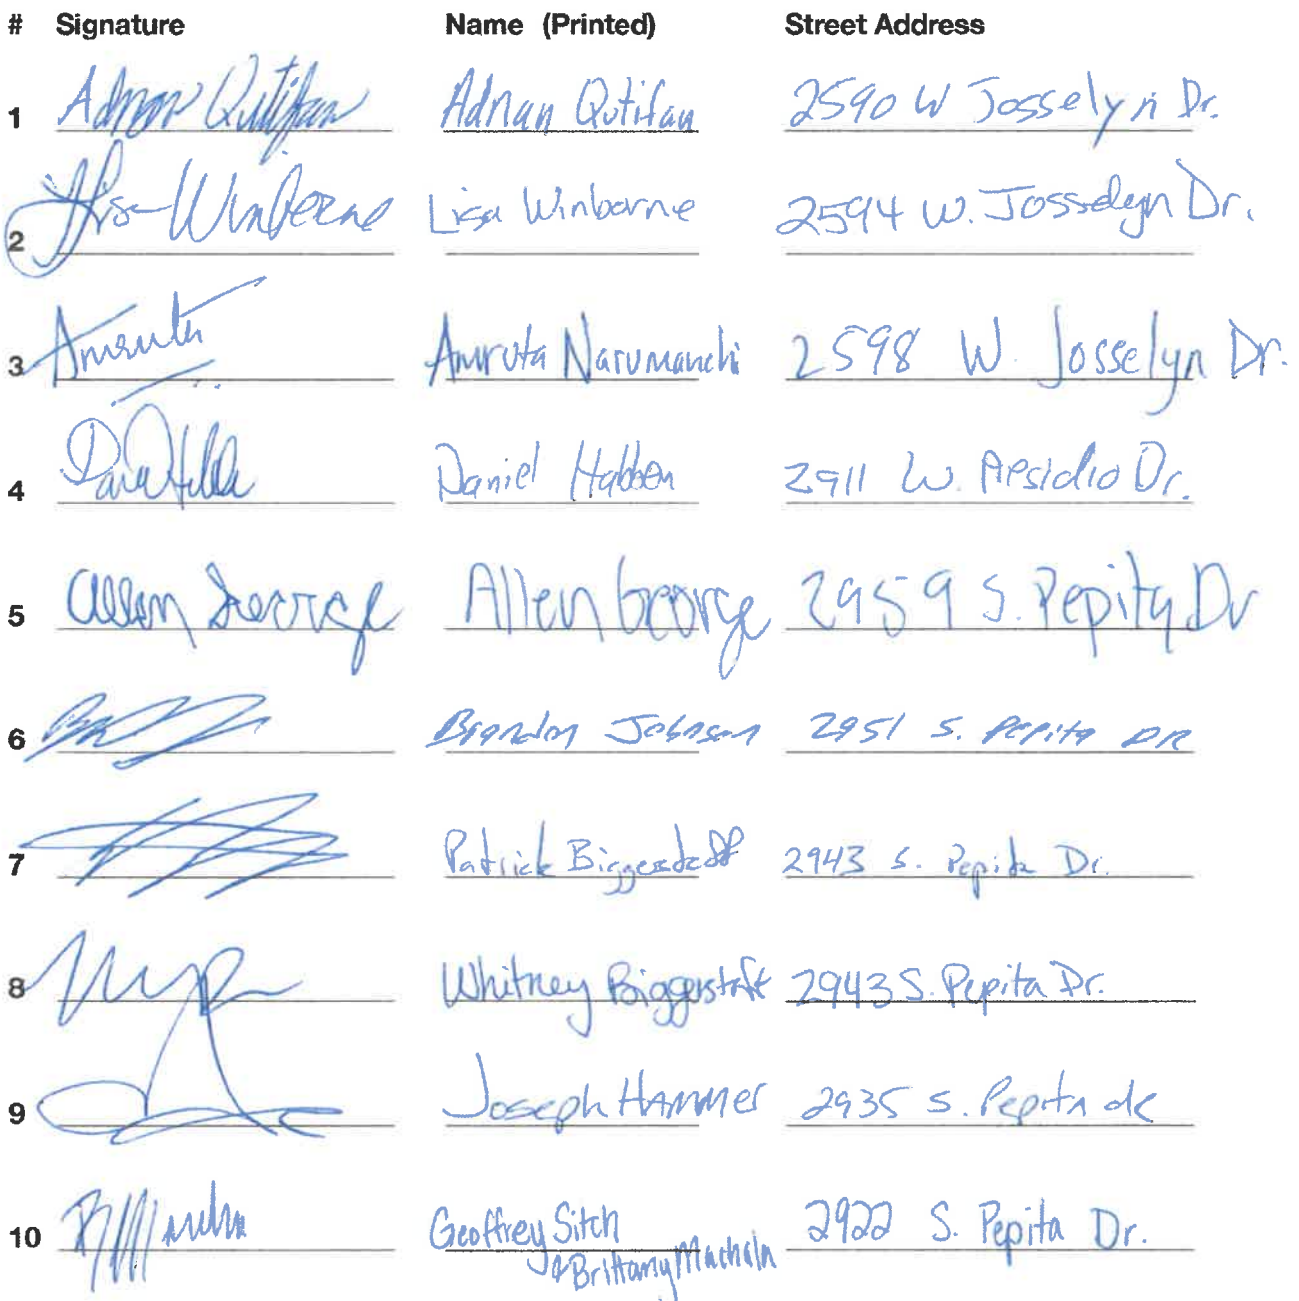 # Signature Name (Printed) Street Address
1 Adnan Qutifan Adnan Qutifan 2590 W Josselyn Dr.
2 Lisa Winborne Lisa Winborne 2594 W. Josselyn Dr.
3 Amruta Amruta Narumanchi 2598 W. Josselyn Dr.
4 Daniel Habben 2911 W. Presidio Dr.
5 Allen George Allen George 2959 S. Pepita Dr
6 Brandon Johnson 2951 S. Pepita DR
7 Patrick Biggerstaff 2943 S. Pepita Dr.
8 Whitney Biggerstaff 2943 S. Pepita Dr.
9 Joseph Hammer 2935 S. Pepita dr
10 Geoffrey Sitch 2922 S. Pepita Dr.
& Brittany Machala